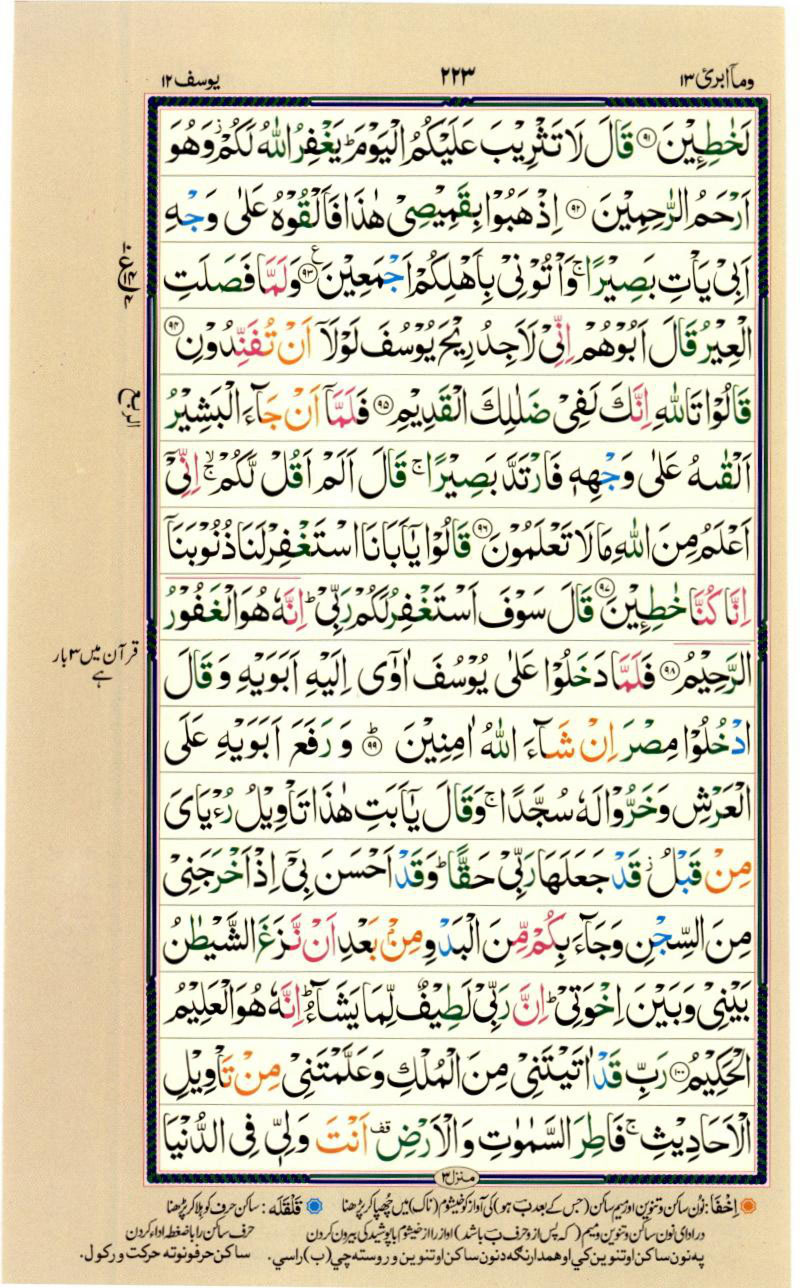 ومآ ابرئ ۱۳ ۲۲۳ يوسف ۱۲
لَخٰطِـِٕيْنَ ۹۱ قَالَ لَا تَثْرِيْبَ عَلَيْكُمُ الْيَوْمَ ؕ يَغْفِرُ اللّٰهُ لَكُمْ ؗ وَهُوَ
اَرْحَمُ الرّٰحِمِيْنَ ۹۲ اِذْهَبُوْا بِقَمِيْصِيْ هٰذَا فَاَلْقُوْهُ عَلٰى وَجْهِ
اَبِيْ يَاْتِ بَصِيْرًا ۚ وَاْتُوْنِيْ بِاَهْلِكُمْ اَجْمَعِيْنَ ۹۳ ع وَلَمَّا فَصَلَتِ
الْعِيْرُ قَالَ اَبُوْهُمْ اِنِّيْ لَاَجِدُ رِيْحَ يُوْسُفَ لَوْلَاۤ اَنْ تُفَنِّدُوْنِ ۹۴
الربع
قَالُوْا تَاللّٰهِ اِنَّكَ لَفِيْ ضَلٰلِكَ الْقَدِيْمِ ۹۵ فَلَمَّاۤ اَنْ جَآءَ الْبَشِيْرُ
اَلْقٰىهُ عَلٰى وَجْهِهٖ فَارْتَدَّ بَصِيْرًا ۚ قَالَ اَلَمْ اَقُلْ لَّكُمْ ۙۚ اِنِّيْۤ
اَعْلَمُ مِنَ اللّٰهِ مَا لَا تَعْلَمُوْنَ ۹۶ قَالُوْا يٰۤاَبَانَا اسْتَغْفِرْ لَنَا ذُنُوْبَنَاۤ
اِنَّا كُنَّا خٰطِـِٕيْنَ ۹۷ قَالَ سَوْفَ اَسْتَغْفِرُ لَكُمْ رَبِّيْ ؕ اِنَّهٗ هُوَ الْغَفُوْرُ
قرآن میں ۳ بار
ہے
الرَّحِيْمُ ۹۸ فَلَمَّا دَخَلُوْا عَلٰى يُوْسُفَ اٰوٰۤى اِلَيْهِ اَبَوَيْهِ وَقَالَ
ادْخُلُوْا مِصْرَ اِنْ شَآءَ اللّٰهُ اٰمِنِيْنَ ۹۹ ؕ وَرَفَعَ اَبَوَيْهِ عَلَى
الْعَرْشِ وَخَرُّوْا لَهٗ سُجَّدًا ۚ وَقَالَ يٰۤاَبَتِ هٰذَا تَاْوِيْلُ رُءْيَايَ
مِنْ قَبْلُ ؗ قَدْ جَعَلَهَا رَبِّيْ حَقًّا ؕ وَقَدْ اَحْسَنَ بِيْۤ اِذْ اَخْرَجَنِيْ
مِنَ السِّجْنِ وَجَآءَ بِكُمْ مِّنَ الْبَدْوِ مِنْۢ بَعْدِ اَنْ نَّزَغَ الشَّيْطٰنُ
بَيْنِيْ وَبَيْنَ اِخْوَتِيْ ؕ اِنَّ رَبِّيْ لَطِيْفٌ لِّمَا يَشَآءُ ؕ اِنَّهٗ هُوَ الْعَلِيْمُ
الْحَكِيْمُ ۱۰۰ رَبِّ قَدْ اٰتَيْتَنِيْ مِنَ الْمُلْكِ وَعَلَّمْتَنِيْ مِنْ تَاْوِيْلِ
الْاَحَادِيْثِ ۚ فَاطِرَ السَّمٰوٰتِ وَالْاَرْضِ قف اَنْتَ وَلِيّٖ فِي الدُّنْيَا
منزل ۳
اِخفَا: نُون ساکن و تنوین اور میم ساکن (جس کے بعد بَ ہو) کی آواز کو خیشوم (ناک) میں چُھپا کر پڑھنا قَلقَلَه: ساکن حرف کو ہلا کر پڑھنا
در ادای نون ساکن و تنوین و میم (که پس از و حرف ب باشد) آواز را از خیشوم با پوشیدگی بیرون کردن حرف ساکن را با ضغطه اداء کردن
په نون ساکن او تنوین کي او همدارنګه د نون ساکن او تنوین وروسته چي (ب) راسي. ساکن حرفونو ته حرکت ورکول.